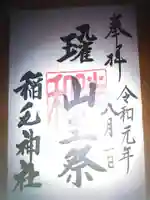 奉拝
令和元年
八月一日
山王祭
稲毛神社